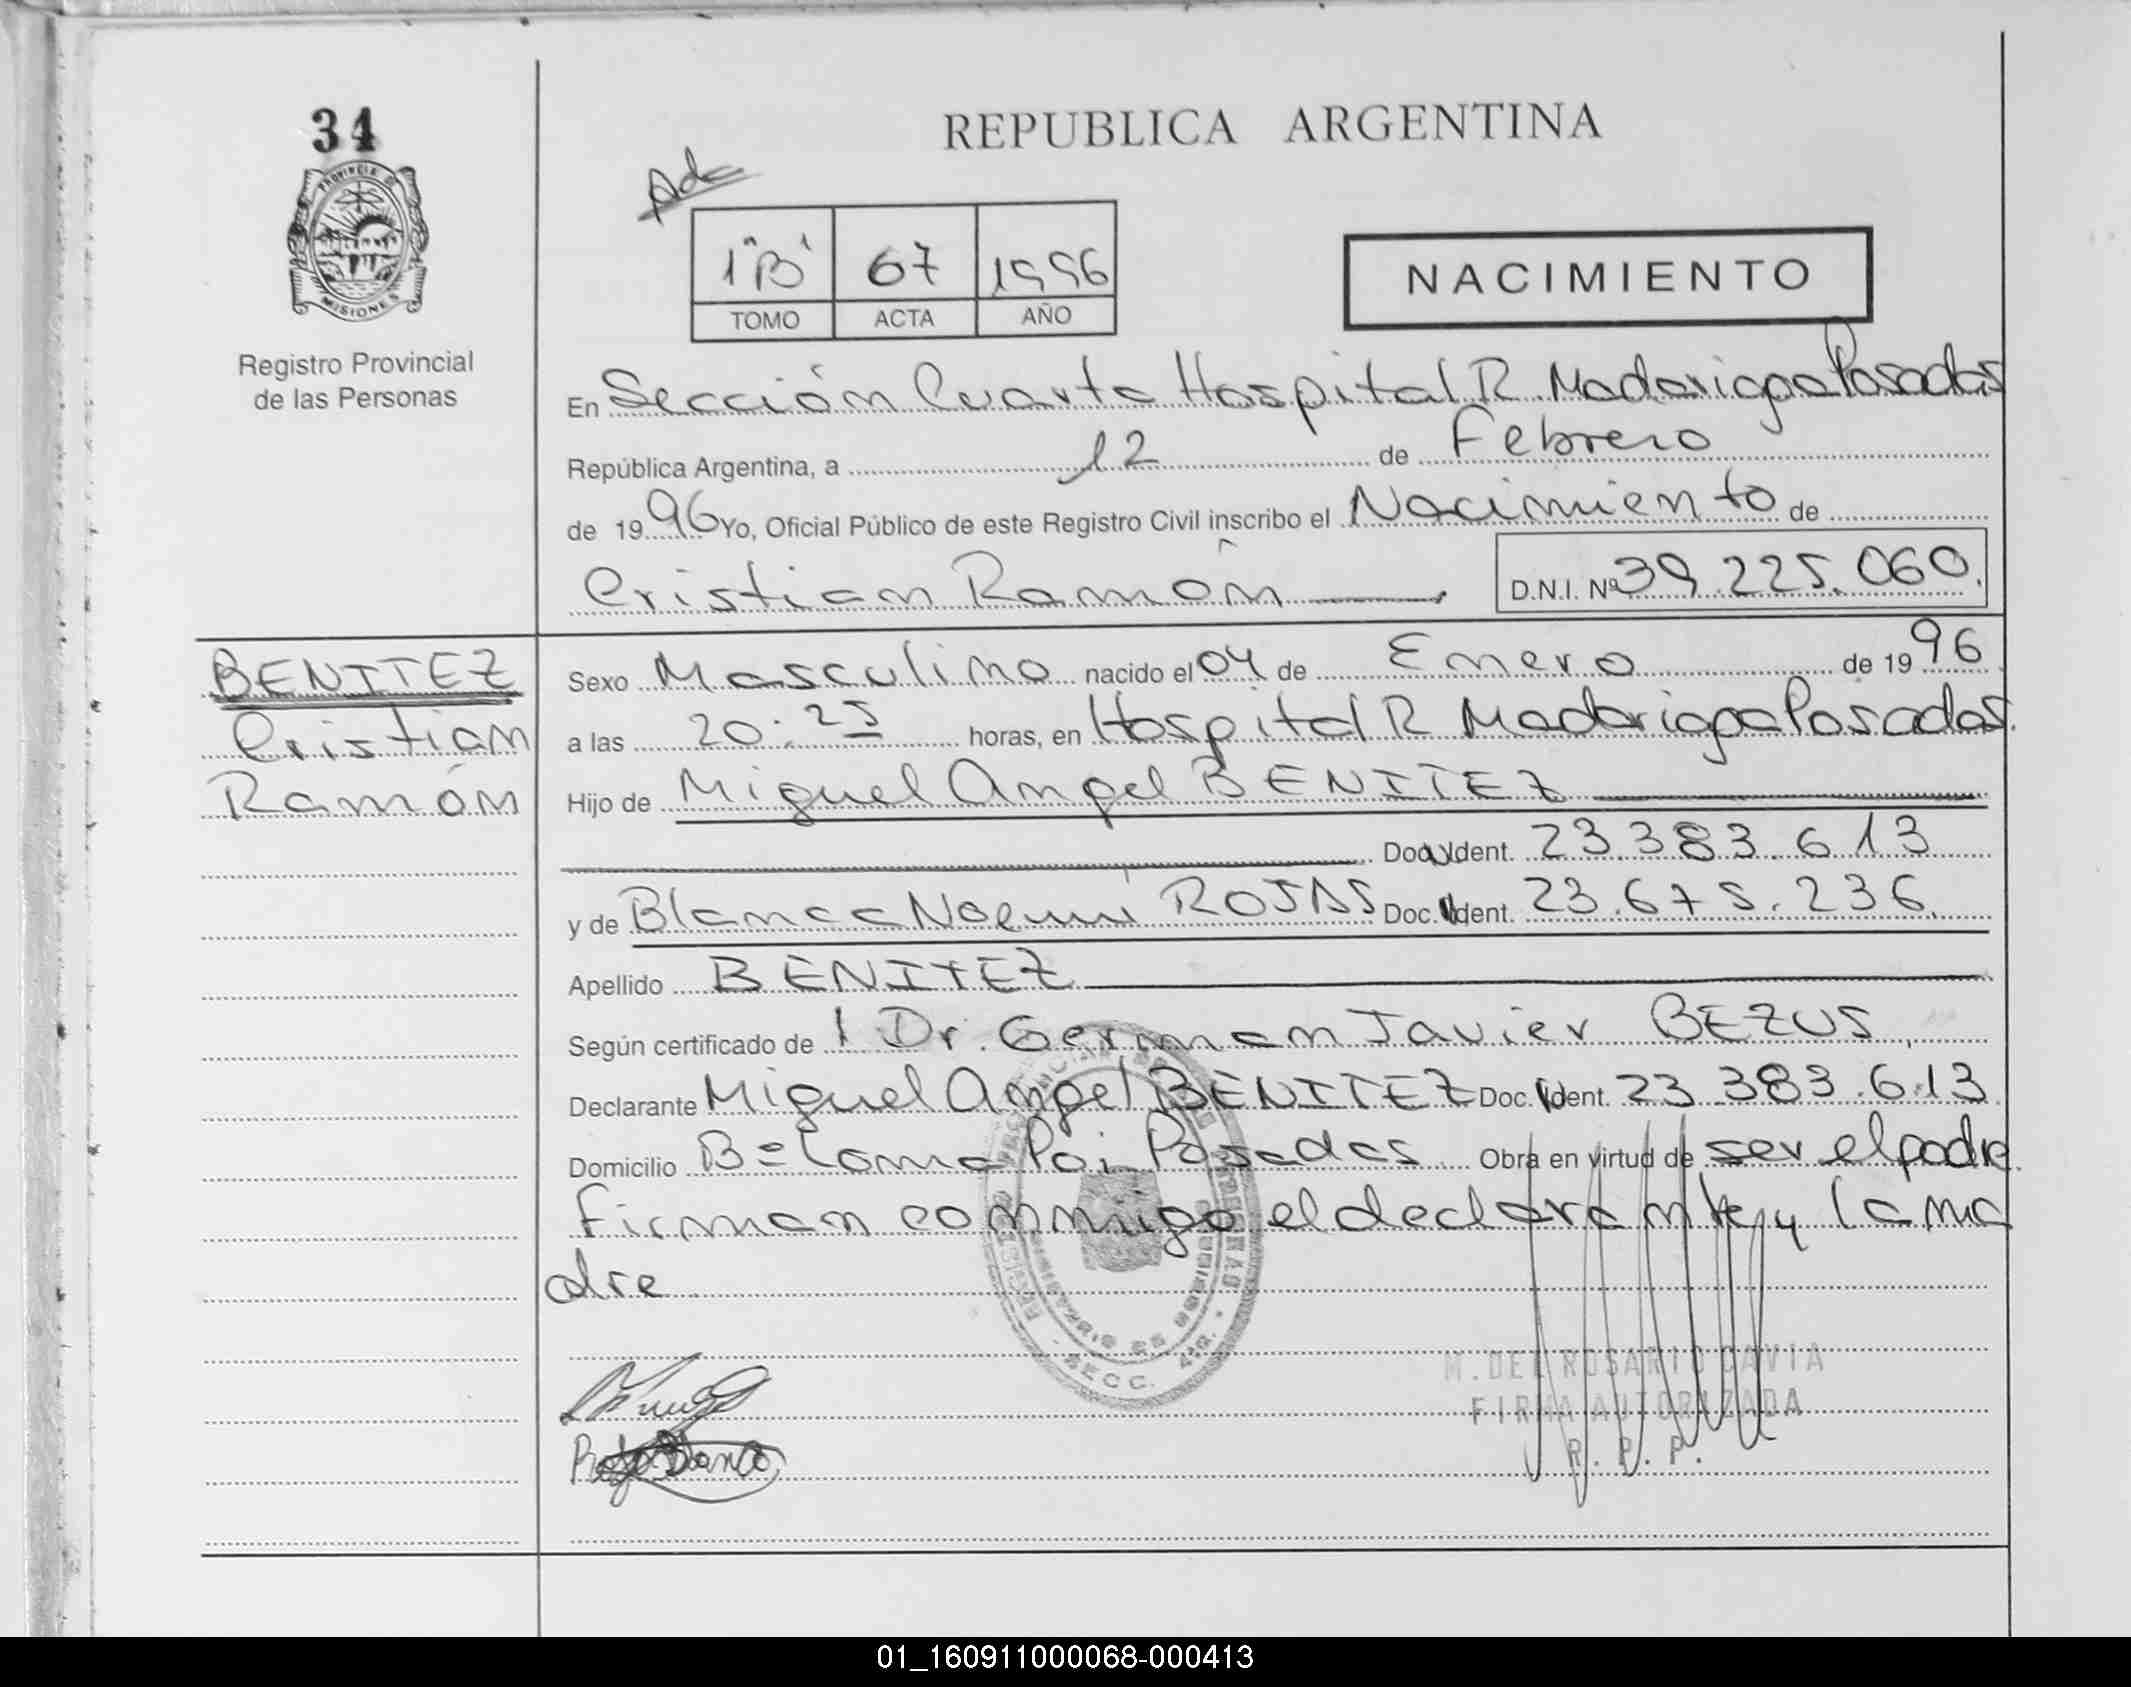 34
PROVINCIA DE
MISIONES
Registro Provincial
de las Personas
REPUBLICA ARGENTINA
1 "B" 67 1996
TOMO ACTA AÑO
NACIMIENTO
En Sección Cuarta Hospital R. Madariaga Posadas
República Argentina, a 12 de Febrero
de 1996 Yo, Oficial Público de este Registro Civil inscribo el Nacimiento de
Cristian Ramón D.N.I. Nº 39.225.060.
BENITEZ
Cristian
Ramón
Sexo Masculino nacido el 04 de Enero de 1996
a las 20:25 horas, en Hospital R Madariaga Posadas.
Hijo de Miguel Angel BENITEZ
Doc. Ident. 23.383.613
y de Blanca Noemí ROJAS Doc. Ident. 23.675.236.
Apellido BENITEZ
Según certificado de Dr. German Javier BEZUS,
Declarante Miguel Angel BENITEZ Doc. Ident. 23 383.613
Domicilio Bº Loma Poi Posadas Obra en virtud de ser el padre
firman conmigo el declarante y la ma
dre
SECC.
M. DEL ROSARIO GAVIA
FIRMA AUTORIZADA
R. P. P.
01_160911000068-000413